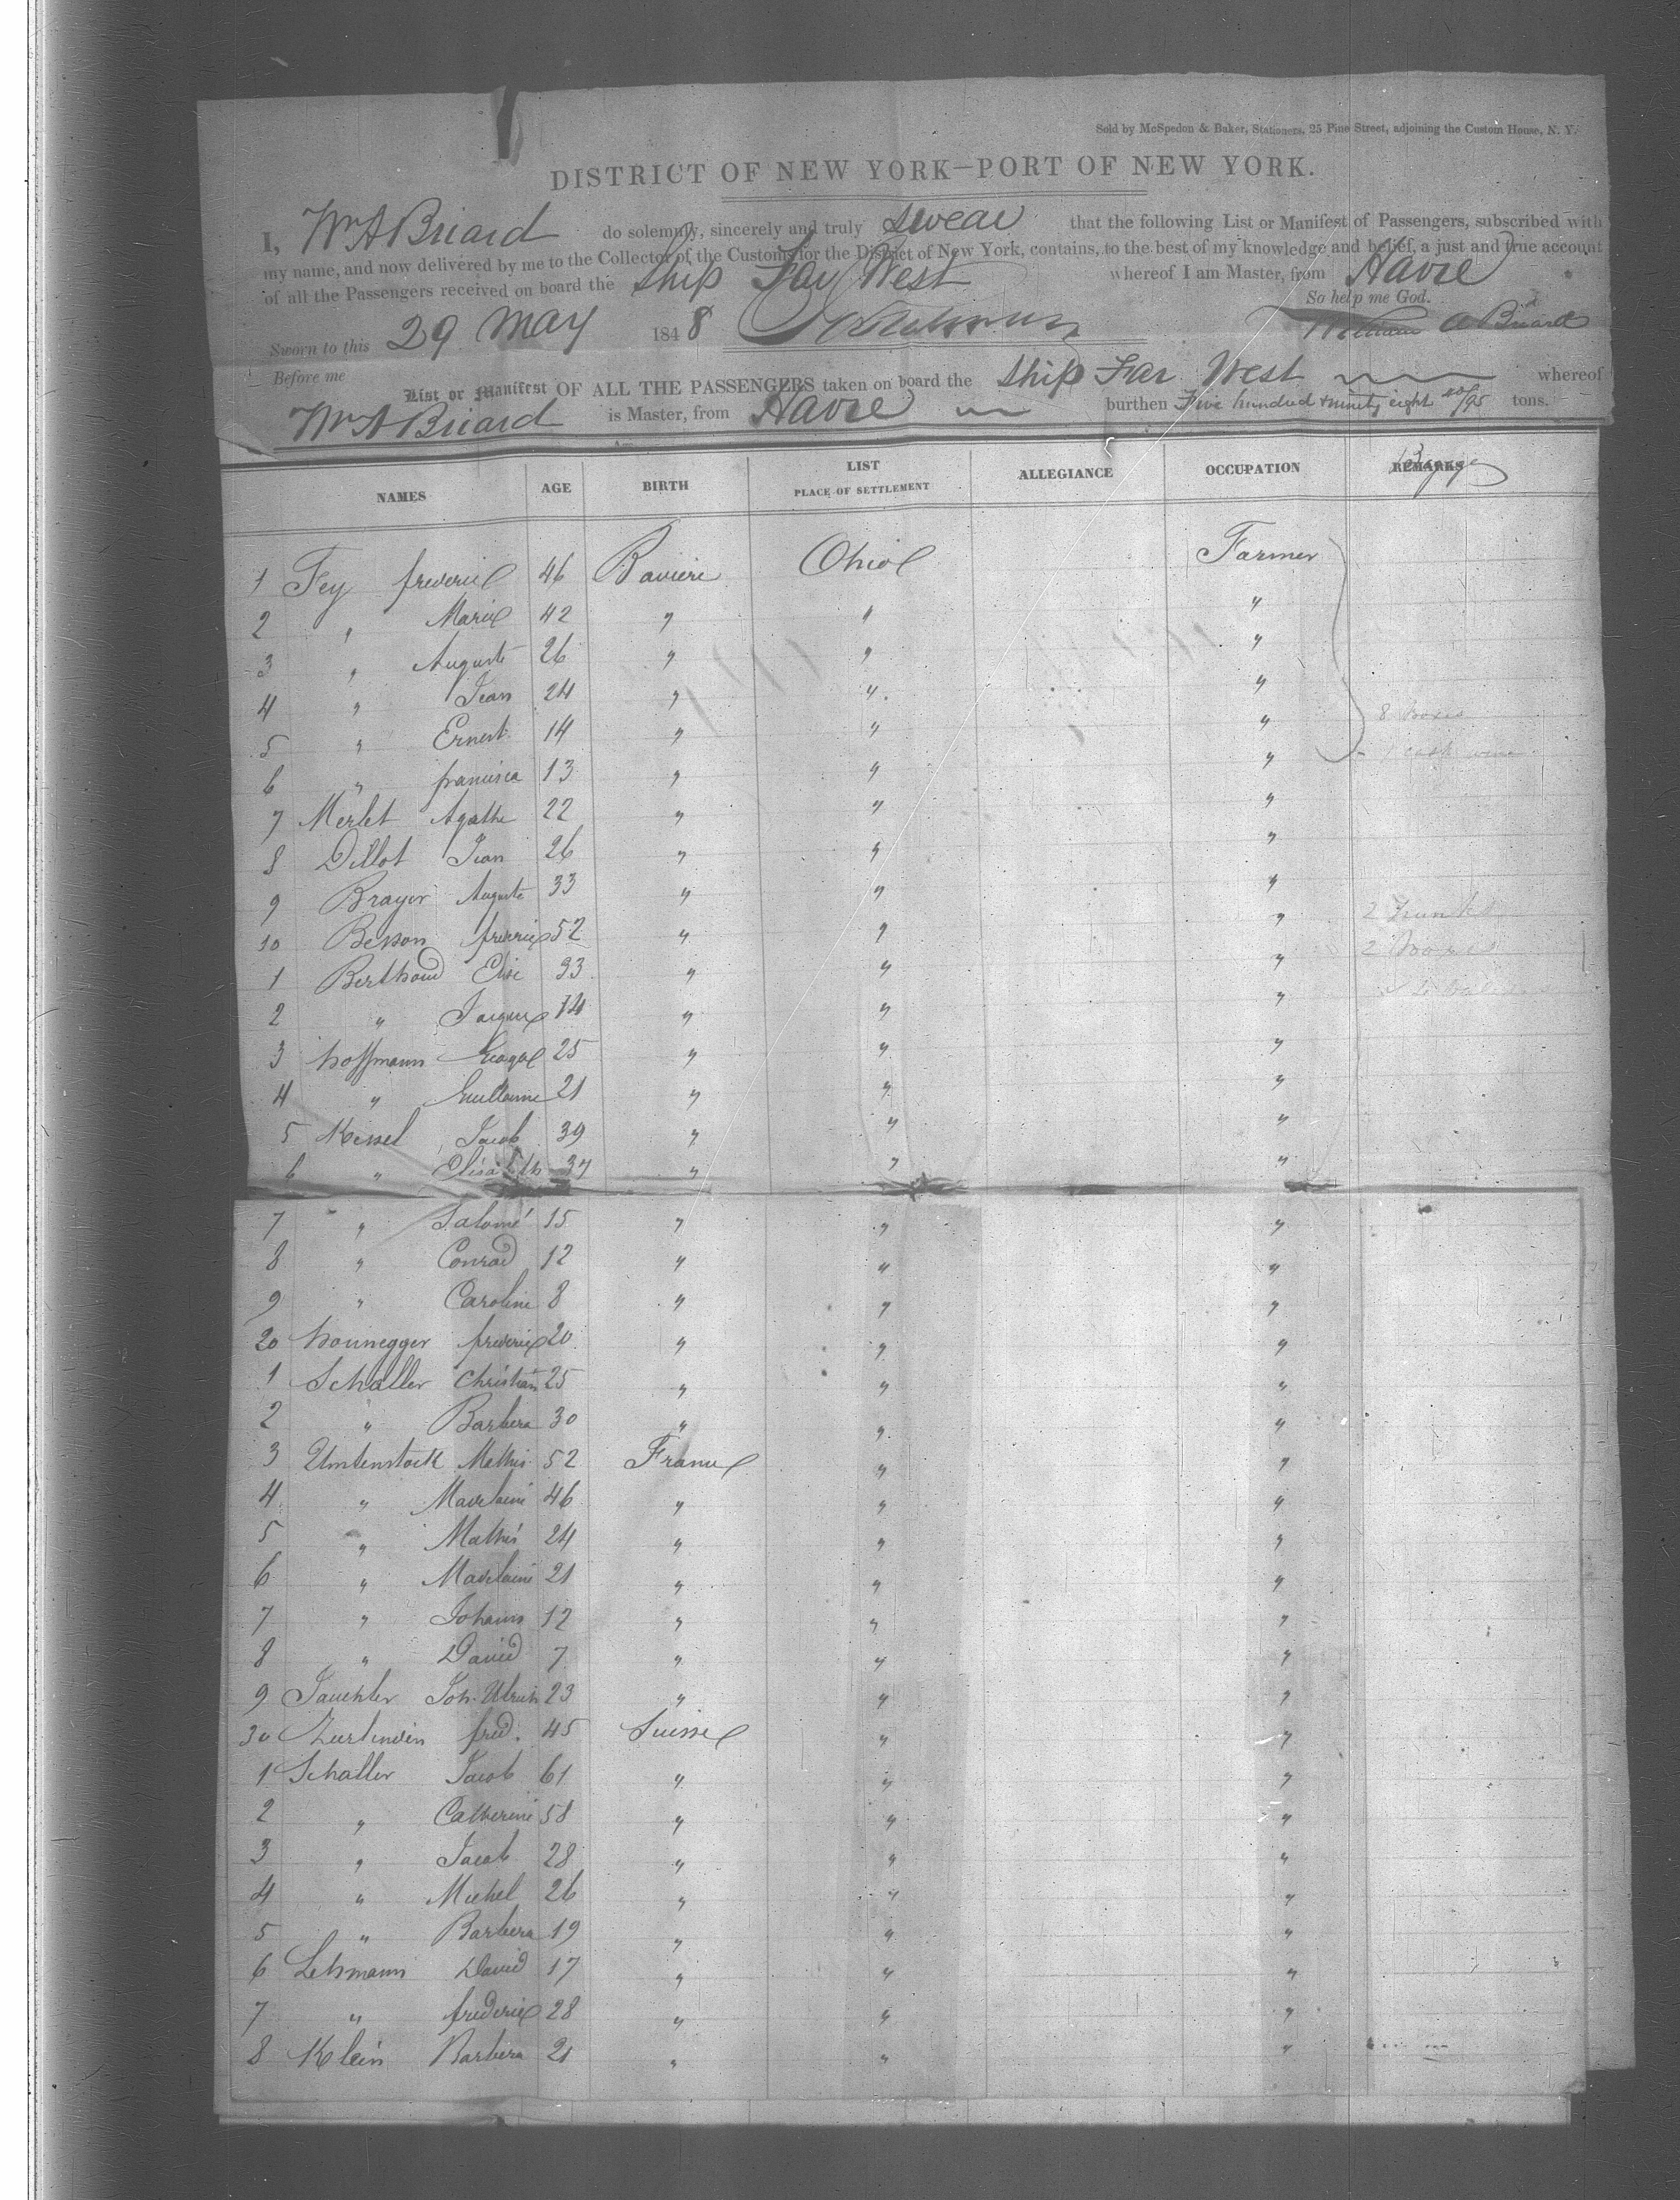 Sold by McSpedon & Baker, Stationers, 25 Pine Street, adjoining the Custom House, N. Y.
DISTRICT OF NEW YORK—PORT OF NEW YORK.
I, Wm A Briard do solemnly, sincerely and truly swear that the following List or Manifest of Passengers, subscribed with
my name, and now delivered by me to the Collector of the Customs for the District of New York, contains, to the best of my knowledge and belief, a just and true account
of all the Passengers received on board the Ship Far West whereof I am Master, from Havre
So help me God.
Sworn to this 29 May 1848 William A Briard
Before me
List or Manifest OF ALL THE PASSENGERS taken on board the Ship Far West whereof
Wm A Briard is Master, from Havre burthen Five hundred & ninety eight /95 tons.
NAMES AGE BIRTH LIST PLACE OF SETTLEMENT ALLEGIANCE OCCUPATION REMARKS
1 Fey frederic 46 Baviere Ohio Farmer
2 " Marie 42 " " "
3 " Auguste 26 " " "
4 " Jean 24 " " "
5 " Ernest 14 " " " 8 boxes
6 " francisca 13 " " " 1 cask wine
7 Merlet Agathe 22 " " "
8 Dillot Jean 26 " " "
9 Brayer Auguste 33 " " "
10 Besson frederic 52 " " " 2 Trunks
1 Berthoud Elise 33 " " " 2 boxes
2 " Jacques 14 " " "
3 hoffmann George 25 " " "
4 " Guillaume 21 " " "
5 Kissel Jacob 39 " " "
6 " Elisabeth 37 " " "
7 " Salomé 15 " " "
8 " Conrad 12 " " "
9 " Caroline 8 " " "
20 honnegger frederic 20 " " "
1 Schaller Christian 25 " " "
2 " Barbera 30 " " "
3 Umbenstock Mathis 52 France " "
4 " Madelaine 46 " " "
5 " Mathis 24 " " "
6 " Madelaine 21 " " "
7 " Johann 12 " " "
8 " David 7 " " "
9 Jauchler Joh. Ulrich 23 " " "
30 Zurlinden fred. 45 Suisse " "
1 Schaller Jacob 61 " " "
2 " Catherine 58 " " "
3 " Jacob 28 " " "
4 " Michel 26 " " "
5 " Barbera 19 " " "
6 Lehmann David 17 " " "
7 " frederic 28 " " "
8 Klein Barbera 21 " " "